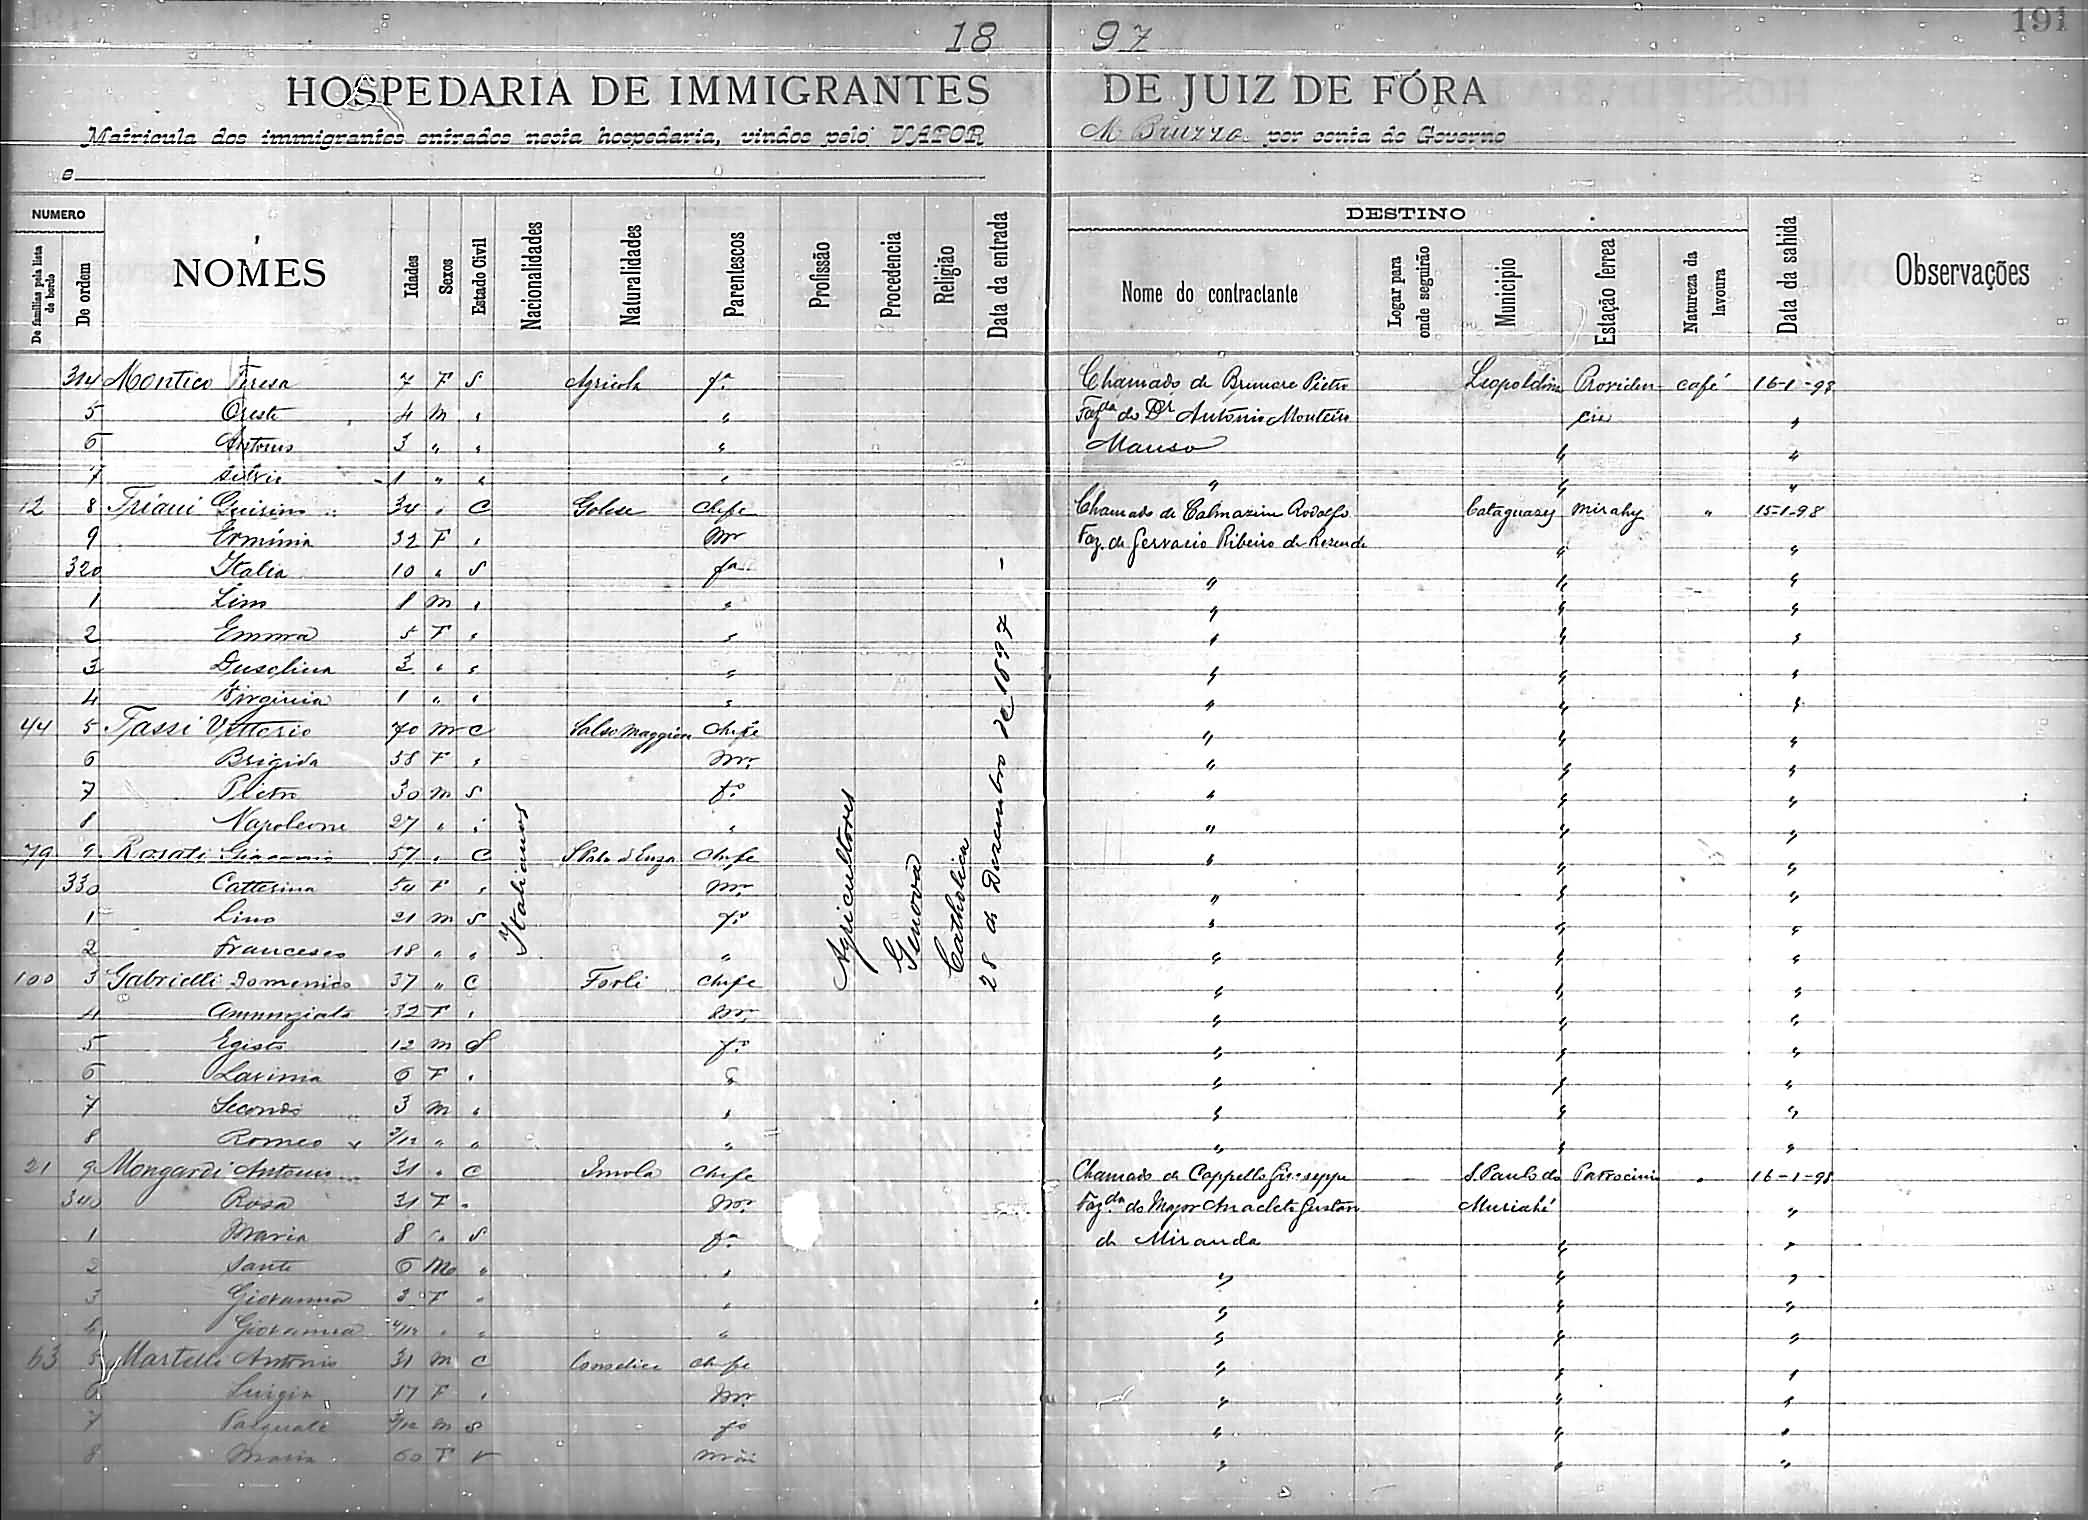 18 97 191
HOSPEDARIA DE IMMIGRANTES DE JUIZ DE FÓRA
Matricula dos immigrantes entrados nesta hospedaria, vindos pelo VAPOR M Bruzzo por conta do Governo
e
NUMERO DESTINO
De familias pela lista de bordo De ordem NOMES Idades Sexos Estado Civil Nacionalidades Naturalidades Parentescos Profissão Procedencia Religião Data da entrada Nome do contractante Logar para onde seguirão Municipio Estação ferrea Natureza da lavoura Data da sahida Observações
314 Montico Teresa 7 F S fa Chamado de Pietro Leopoldina Providen café 16-1-98
5 Oreste 4 M " " Fazda do Dr Antonio Monteiro cia "
6 Antonio 3 " " " Manso " "
7 Silvio 1 " " " " " "
12 8 34 " C Golese Chefe Chamado de Rodolfo Cataguazy Mirahy " 15-1-98
9 Erminia 32 F " Mr Faz. de Gervasio Ribeiro de Rezende " "
320 Italia 10 " S fa " " "
1 8 M " " " " "
2 Emma 5 F " " " " "
3 3 " " " " " "
4 Virginia 1 " " " " " "
44 5 Tassi Vittorio 70 M C Salso Maggiore Chefe " " "
6 Brigida 58 F " Mr " " "
7 Pietro 30 M S fo " " "
8 Napoleone 27 " " " " " "
79 9 Rosati Giacomo 57 " C Chefe " " "
330 Catterina 54 F " Mr " " "
1 Lino 21 M S fo " " "
2 Francesco 18 " " " " " "
100 3 Gabrielli Domenico 37 " C Forli Chefe " " "
4 Annunziata 32 F " Mr " " "
5 Egisto 12 M S fo " " "
6 6 F " " " " "
7 Secondo 3 M " " " " "
8 Romeo " " " " " "
21 9 Mongardi Antonio 31 " C Imola Chefe Chamado de Cappello Giuseppe S. Paulo do Patrocinio " 16-1-98
340 Rosa 31 F " Mr Fazda do Major Anacleto Gustavo Muriahé "
1 Maria 8 " S fa de Miranda " "
2 Sante 6 M " " " " "
3 Giovanna 3 F " " " " "
4 Giovanna " " " " " "
63 5 Martelli Antonio 31 M C Conselice Chefe " " "
6 Luigia 17 F " Mr " " "
7 Pasquale M S fo " " "
8 Maria 60 F V Mãi " " "
Italianos
Agricultores
Genova
Catholica
28 de Dezembro de 1897